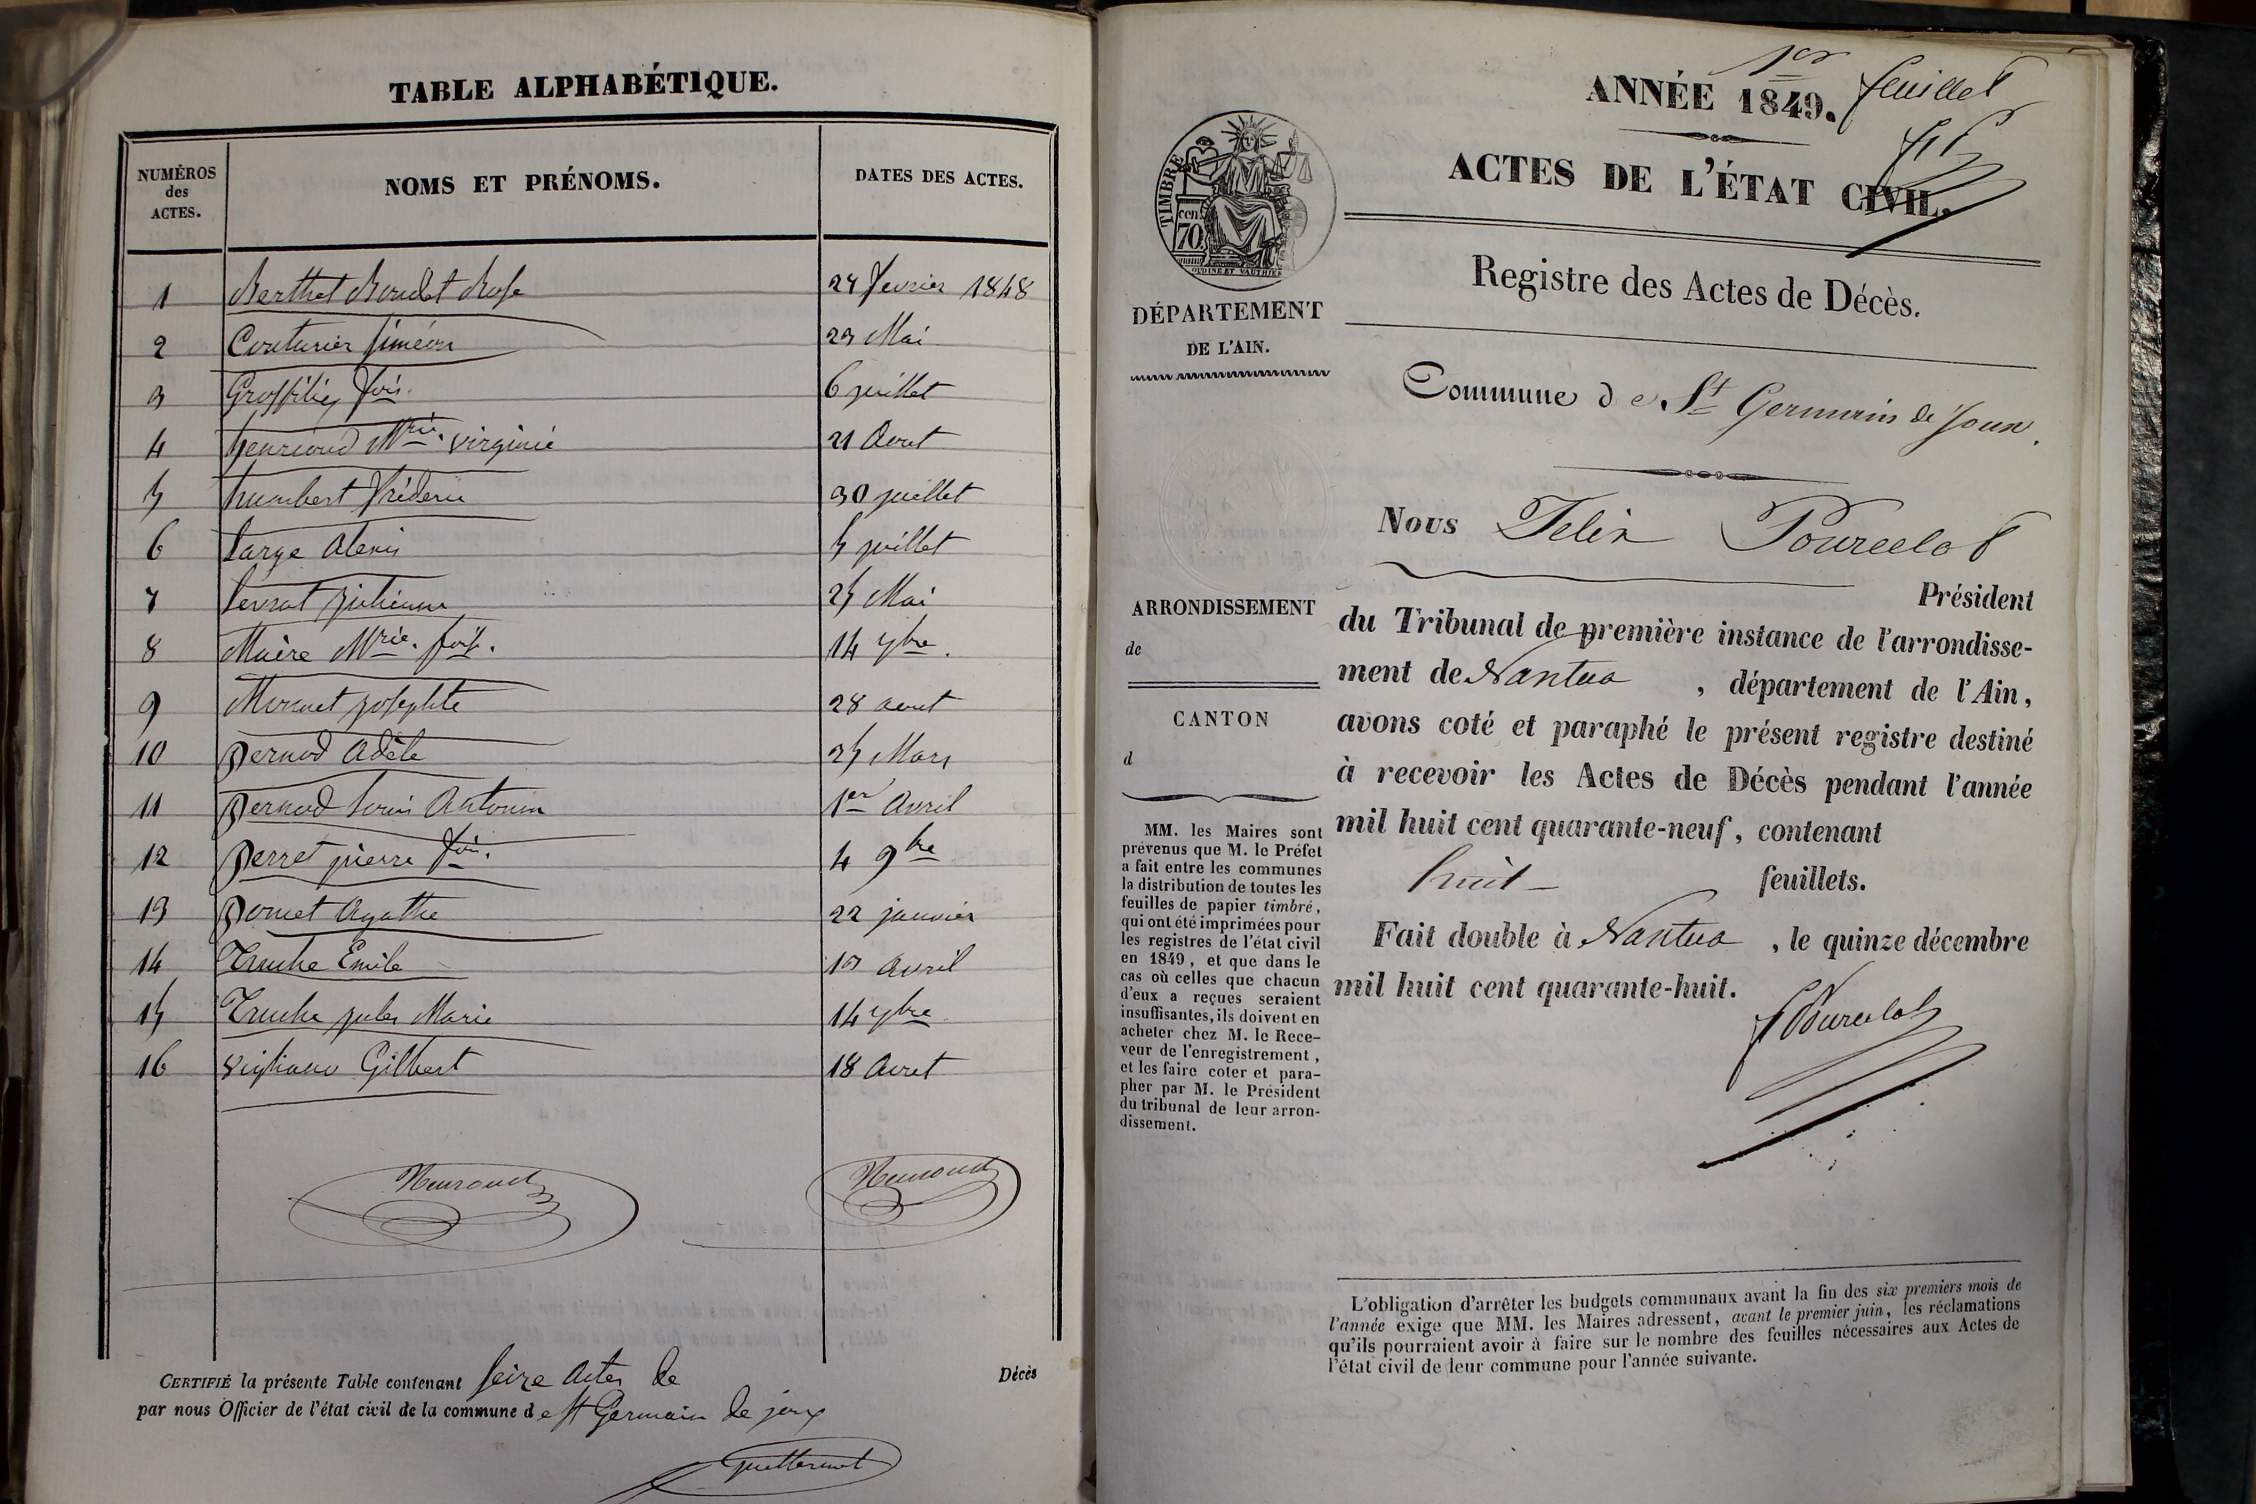 TABLE ALPHABÉTIQUE.
NUMÉROS
des
ACTES.
NOMS ET PRÉNOMS.
DATES DES ACTES.
1 Berthet Boudet Rose 24 fevrier 1848
2 Couturier Siméon 23 Mai
3 Grosfilley fois. 6 juillet
4 henrioud Mrie. virginie 21 Aout
5 humbert frédéric 30 juillet
6 Large Alexis 5 juillet
7 Levrat julienne 25 Mai
8 Maère Mrie. 14 7bre.
9 Mornet josephte 28 aout
10 pernod Adèle 25 Mars
11 pernod Louis Antonin 1er Avril
12 perret pierre fois. 4 9bre
13 pornet Agathe 22 janvier
14 Truche Emile avril
15 Truche jules Marie 14 7bre
16 Gilbert 18 Aout
CERTIFIÉ la présente Table contenant seize Actes de Décès
par nous Officier de l'état civil de la commune d e St Germain de joux
ANNÉE 1849.
1er feuillet
ACTES DE L'ÉTAT CIVIL.
TIMBRE
70 cen.
OUDINÉ ET VAUTHIER
Registre des Actes de Décès.
DÉPARTEMENT
DE L'AIN.
Commune d e St Germain de Joux.
Nous Felix Pourcelot
Président
ARRONDISSEMENT
de
CANTON
d
du Tribunal de première instance de l'arrondisse-
ment de Nantua, département de l'Ain,
avons coté et paraphé le présent registre destiné
à recevoir les Actes de Décès pendant l'année
mil huit cent quarante-neuf, contenant
huit feuillets.
Fait double à Nantua, le quinze décembre
mil huit cent quarante-huit.
F Pourcelot
MM. les Maires sont
prévenus que M. le Préfet
a fait entre les communes
la distribution de toutes les
feuilles de papier timbré,
qui ont été imprimées pour
les registres de l'état civil
en 1849, et que dans le
cas où celles que chacun
d'eux a reçues seraient
insuffisantes, ils doivent en
acheter chez M. le Rece-
veur de l'enregistrement,
et les faire coter et para-
pher par M. le Président
du tribunal de leur arron-
dissement.
L'obligation d'arrêter les budgets communaux avant la fin des six premiers mois de
l'année exige que MM. les Maires adressent, avant le premier juin, les réclamations
qu'ils pourraient avoir à faire sur le nombre des feuilles nécessaires aux Actes de
l'état civil de leur commune pour l'année suivante.